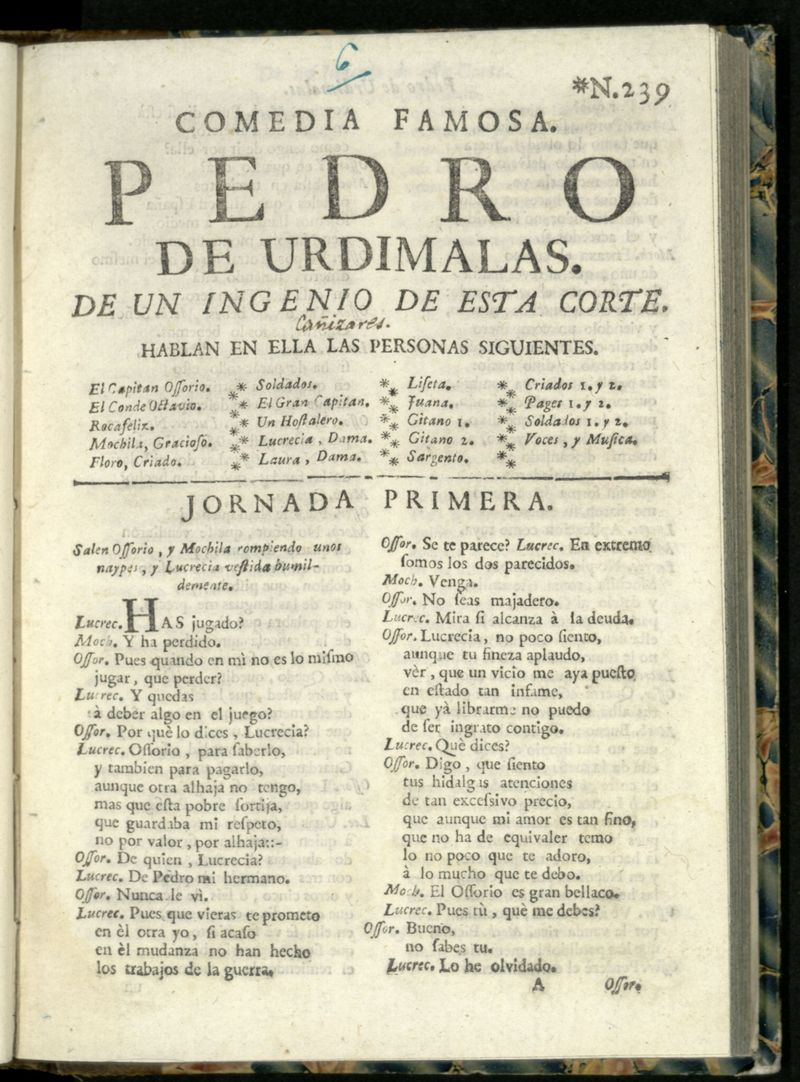 6
*N.239
COMEDIA FAMOSA.
PEDRO
DE URDIMALAS.
DE UN INGENIO DE ESTA CORTE.
Cañizares.
HABLAN EN ELLA LAS PERSONAS SIGUIENTES.
El Capitan Oſſorio.
El Conde Octavio.
Rocafeliz.
Mochila, Gracioſo.
Floro, Criado.
Soldados.
El Gran Capitan.
Un Hoſtalero.
Lucrecia, Dama.
Laura, Dama.
Liſeta.
Juana.
Gitano 1.
Gitano 2.
Sargento.
Criados 1. y 2.
Pages 1. y 2.
Soldados 1. y 2.
Voces, y Muſica.
JORNADA PRIMERA.
Salen Oſſorio, y Mochila rompiendo unos
naypes, y Lucrecia veſtida humil-
demente.
Lucrec. HAS jugado?
Moch. Y ha perdido.
Oſſor. Pues quando en mì no es lo miſmo
jugar, que perder?
Lucrec. Y quedas
à deber algo en el juego?
Oſſor. Por què lo dices, Lucrecia?
Lucrec. Oſſorio, para ſaberlo,
y tambien para pagarlo,
aunque otra alhaja no tengo,
mas que eſta pobre ſortija,
que guardaba mi reſpeto,
no por valor, por alhaja::-
Oſſor. De quien, Lucrecia?
Lucrec. De Pedro mi hermano.
Oſſor. Nunca le vì.
Lucrec. Pues que vieras te prometo
en èl otra yo, ſi acaſo
en èl mudanza no han hecho
los trabajos de la guerra.
Oſſor. Se te parece? Lucrec. En extremo
ſomos los dos parecidos.
Moch. Venga.
Oſſor. No ſeas majadero.
Lucrec. Mira ſi alcanza à la deuda.
Oſſor. Lucrecia, no poco ſiento,
aunque tu fineza aplaudo,
vèr, que un vicio me aya pueſto
en eſtado tan infame,
que yà librarme no puedo
de ſer ingrato contigo.
Lucrec. Què dices?
Oſſor. Digo, que ſiento
tus hidalgas atenciones
de tan exceſsivo precio,
que aunque mi amor es tan fino,
que no ha de equivaler temo
lo no poco que te adoro,
à lo mucho que te debo.
Moch. El Oſſorio es gran bellaco.
Lucrec. Pues tù, què me debes?
Oſſor. Bueno,
no ſabes tu.
Lucrec. Lo he olvidado.
A Oſſor.